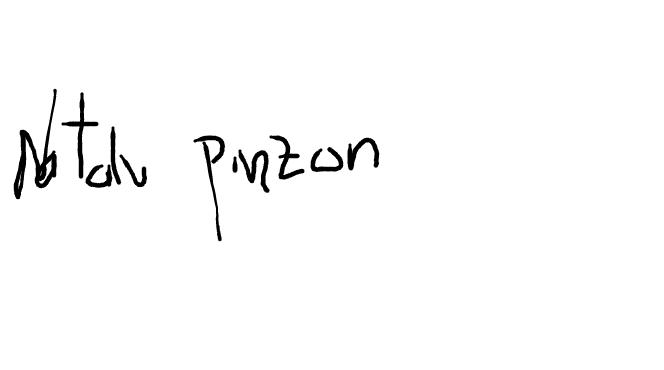 Nataly pinzon